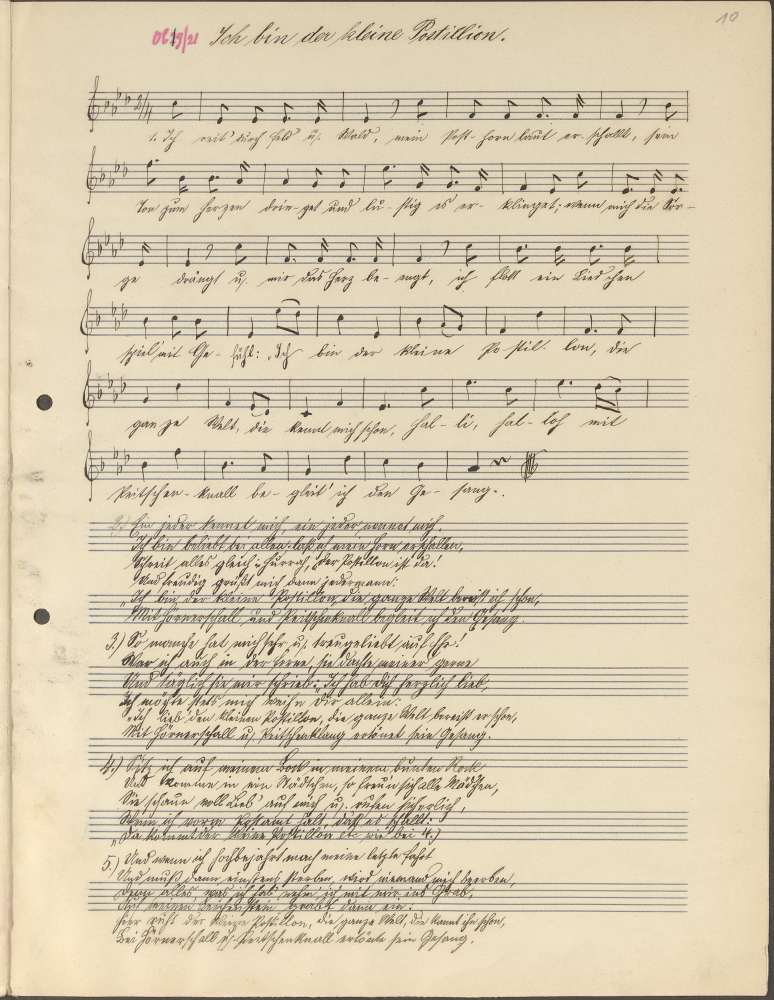 10
Ich bin der kleine Postillion.
2/4
1. Ich reit' durch Feld u. Wald, mein Post-horn laut er-schallt, sein
Ton zum Herzen drin-get und lu-stig es er-klinget; wenn mich die Sor-
ge drängt u. mir das Herz be-engt, ich flott ein Liedchen
spiel' mit Ge-fühl: „Ich bin der kleine Po-stil-lon, die
ganze Welt, die kennt mich schon, Hal-li, hal-loh mit
Peitschen-knall be-gleit' ich den Ge-sang.
2.) Ein jeder kennet mich, ein jeder nennet mich.
Ich bin beliebt bei allen, laß ich mein Horn erschallen,
Schreit alles gleich: Hurrah, der Postillon ist da!
Und freudig grüßt mich dann jedermann:
„Ich bin der kleine Postillon, die ganze Welt bereist ich schon,
Mit Hörnerschall und Peitschenknall begleit ich den Gesang.
3.) So manche hat mich sehr u. treu geliebt auf Ehr!
War ich auch in der Ferne, sie dachte meiner gerne
Und täglich sie mir schrieb: „Ich hab dich herzlich lieb,
Ich möchte stets mich weihn dir allein.
„Ich lieb' den kleinen Postillon, die ganze Welt bereist er schon,
Mit Hörnerschall u. Peitschenklang ertönet sein Gesang.
4.) Sitz ich auf meinem Bock in meinem bunten Rock
Und komme in ein Städtchen, so freun sich alle Mädchen,
Sie schaun voll Lieb' auf mich u. rufen sicherlich,
Wenn ich vorm Postamt halt, daß es schallt:
„Da kommt der kleine Postillon etc. wie bei 4.)
5.) Und wenn ich hochbejahrt mach meine letzte Fahrt
Und muß dann einstens sterben, wird niemand mich beerben,
Denn alles was ich hab nehm ich mit mir ins Grab,
Auf meinen Leichenstein grabt dann ein:
Hier ruht der kleine Postillon, die ganze Welt, die kannt ihn schon,
Bei Hörnerschall u. Peitschenknall ertönte sein Gesang.